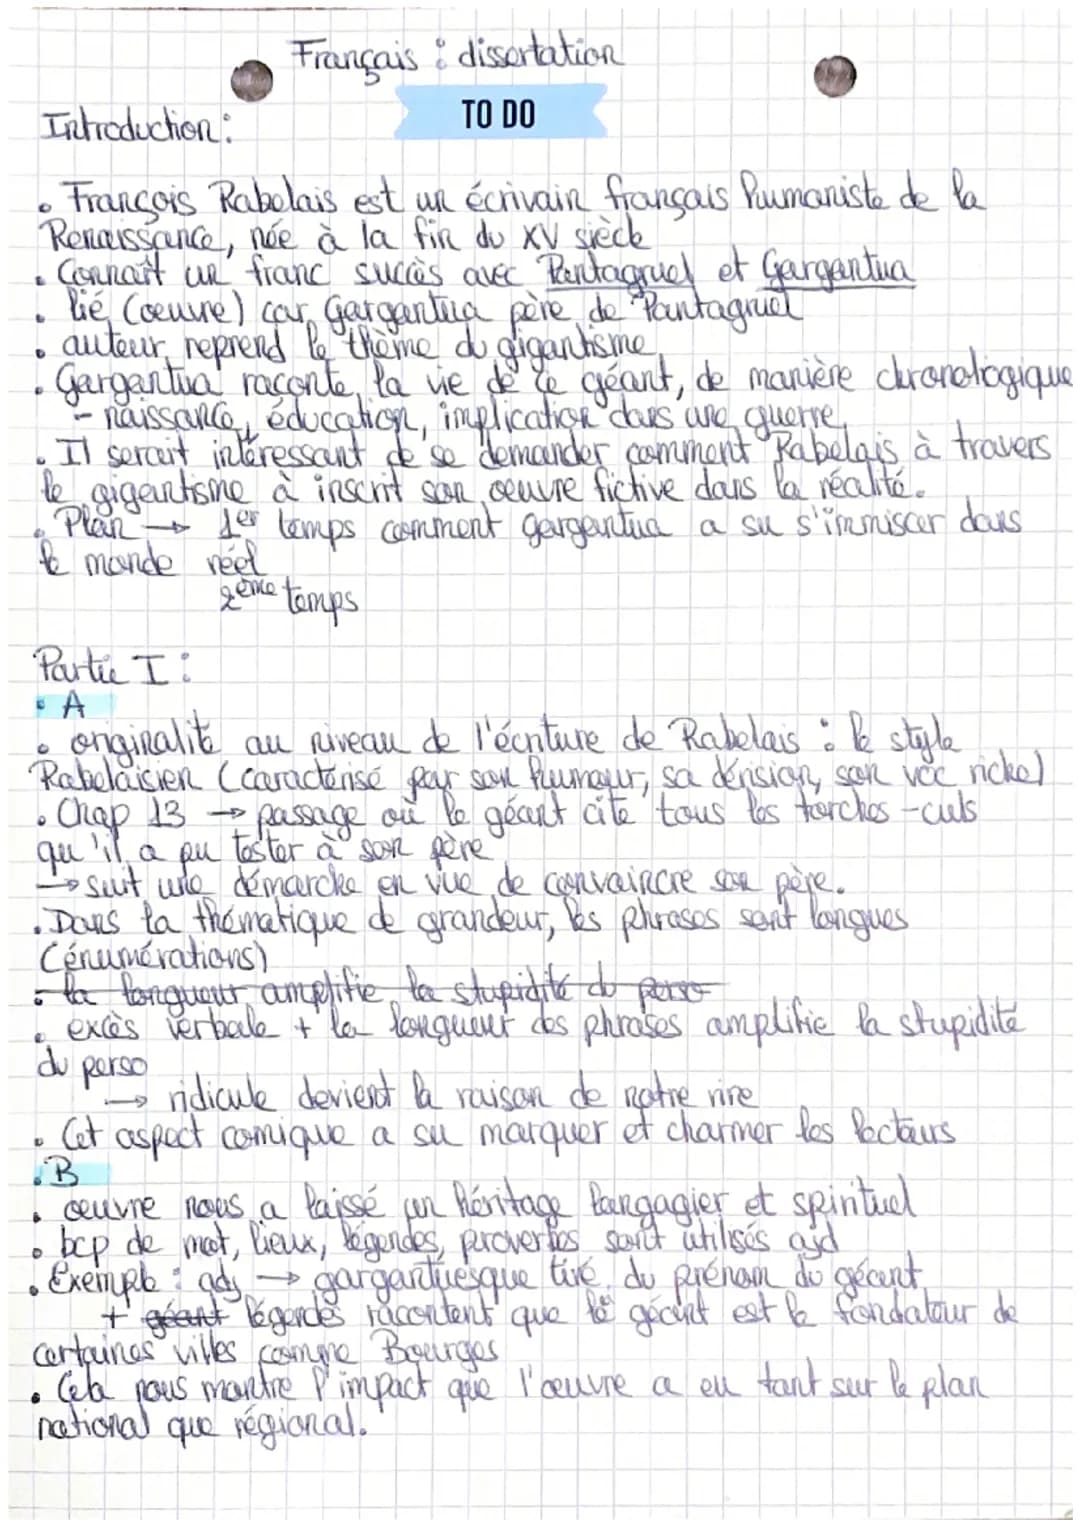 Français : dissertation
TO DO
Introduction :
• François Rabelais est un écrivain français humaniste de la
Renaissance, née à la fin du XV siècle
• Connaît un franc succès avec Pantagruel et Gargantua
• lié (œuvre) car Gargantua père de Pantagruel
• auteur reprend le thème du gigantisme
• Gargantua raconte la vie de ce géant, de manière chronologique
- naissance, éducation, implication dans une guerre
• Il serait intéressant de se demander comment Rabelais à travers
le gigantisme à inscrit son œuvre fictive dans la réalité.
• Plan → 1er temps comment gargantua a su s'immiscer dans
le monde réel
2ème temps
Partie I :
• A
• originalité au niveau de l'écriture de Rabelais : le style
Rabelaisien (caractérisé par son humour, sa dérision, son voc riche)
• Chap 13 → passage où le géant cite tous les torches-culs
qu'il a pu tester à son père
→ suit une démarche en vue de convaincre son père.
• Dans la thématique de grandeur, les phrases sont longues
(énumérations)
• la longueur amplifie la stupidité du perso
• excès verbale + la longueur des phrases amplifie la stupidité
du perso
→ ridicule devient la raison de notre rire
• Cet aspect comique a su marquer et charmer les lecteurs
• B
• œuvre nous a laissé un héritage langagier et spirituel
• bcp de mot, lieux, légendes, proverbes sont utilisés ajd
• Exemple : adj → gargantuesque tiré du prénom du géant
+ géant légendes racontent que le géant est le fondateur de
certaines villes comme Bourges
• Cela nous montre l'impact que l'œuvre a eu tant sur le plan
national que régional.